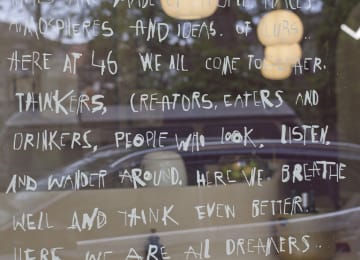 MADE OF PEOPLE, PLACES,
ATMOSPHERES AND IDEAS. OF
HERE AT 46 WE ALL COME TOGETHER.
THINKERS, CREATORS, EATERS AND
DRINKERS, PEOPLE WHO LOOK, LISTEN,
AND WANDER AROUND. HERE WE BREATHE
WELL AND THINK EVEN BETTER.
HERE WE ARE ALL DREAMERS..